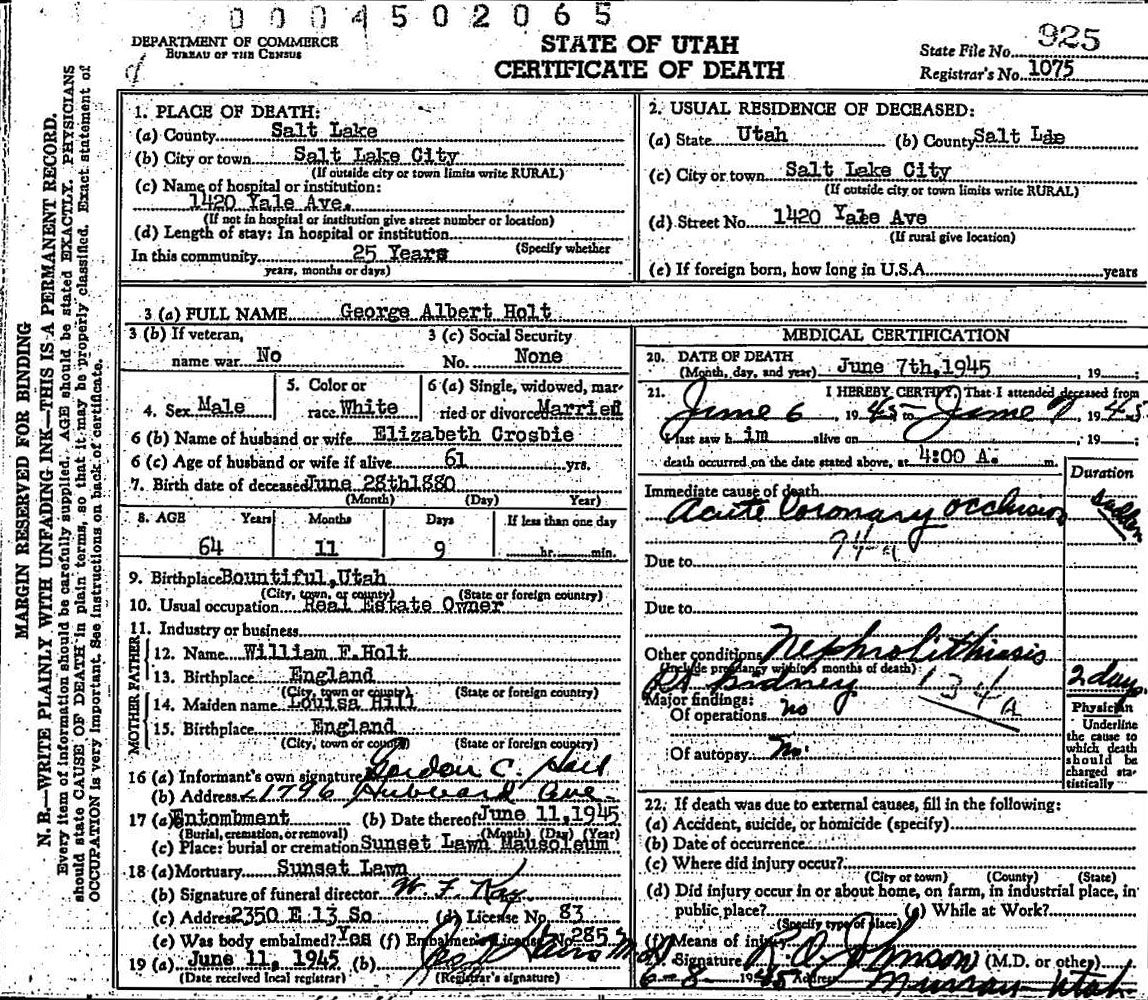 0004502065
DEPARTMENT OF COMMERCE
BUREAU OF THE CENSUS
STATE OF UTAH
CERTIFICATE OF DEATH
State File No. 925
Registrar's No. 1075
MARGIN RESERVED FOR BINDING
N. B.—WRITE PLAINLY WITH UNFADING INK—THIS IS A PERMANENT RECORD.
Every item of information should be carefully supplied. AGE should be stated EXACTLY. PHYSICIANS
should state CAUSE OF DEATH in plain terms, so that it may be properly classified. Exact statement of
OCCUPATION is very important. See instructions on back of certificate.
1. PLACE OF DEATH:
(a) County Salt Lake
(b) City or town Salt Lake City
(If outside city or town limits write RURAL)
(c) Name of hospital or institution:
1420 Yale Ave.
(If not in hospital or institution give street number or location)
(d) Length of stay: In hospital or institution
(Specify whether
In this community 25 Years
years, months or days)
2. USUAL RESIDENCE OF DECEASED:
(a) State Utah (b) County Salt
(c) City or town Salt Lake City
(If outside city or town limits write RURAL)
(d) Street No. 1420 Yale Ave
(If rural give location)
(e) If foreign born, how long in U.S.A. years
3 (a) FULL NAME George Albert Holt
3 (b) If veteran,
name war No
3 (c) Social Security
No. None
4. Sex Male
5. Color or
race White
6 (a) Single, widowed, mar-
ried or divorced Married
6 (b) Name of husband or wife Elizabeth Crosbie
6 (c) Age of husband or wife if alive 61 yrs.
7. Birth date of deceased June 28th 1880
(Month) (Day) Year)
8. AGE Years Months Days If less than one day
64 11 9 hr. min.
9. Birthplace Bountiful, Utah
(City, town, or county) (State or foreign country)
10. Usual occupation Real Estate Owner
11. Industry or business
FATHER
12. Name William F. Holt
13. Birthplace England
(City, town or county) (State or foreign country)
MOTHER
14. Maiden name Louisa Hill
15. Birthplace England
(City, town or county) (State or foreign country)
16 (a) Informant's own signature Gordon C. Holt
(b) Address 1796 Hubbard Ave
17 (a) Entombment (b) Date thereof June 11, 1945
(Burial, cremation, or removal) (Month) (Day) (Year)
(c) Place: burial or cremation Sunset Lawn Mausoleum
18 (a) Mortuary Sunset Lawn
(b) Signature of funeral director W. F. Kay
(c) Address 2350 E 13 So (d) License No. 83
(e) Was body embalmed? Yes (f) Embalmer's License No. 285
19 (a) June 11, 1945 (b)
(Date received local registrar) (Registrar's signature)
MEDICAL CERTIFICATION
20. DATE OF DEATH
(Month, day, and year) June 7th, 1945 , 19
21. I HEREBY CERTIFY, That I attended deceased from
June 6 , 1945 to June 7 , 1945
I last saw h im alive on , 19 ;
death occurred on the date stated above, at 4:00 A. m.
Duration
Immediate cause of death
Acute Coronary Occlusion sudden
94-a
Due to
Due to
Other conditions Nephrolithiasis
(Include pregnancy within 3 months of death)
Rt kidney 134a 2 days
Major findings:
Of operations no
Of autopsy No.
Physician
Underline
the cause to
which death
should be
charged sta-
tistically
22. If death was due to external causes, fill in the following:
(a) Accident, suicide, or homicide (specify)
(b) Date of occurrence
(c) Where did injury occur?
(City or town) (County) (State)
(d) Did injury occur in or about home, on farm, in industrial place, in
public place? (e) While at Work?
(Specify type of place)
(f) Means of injury
Signature R O Johnson (M.D. or other)
6-8- 1945 Address Murray Utah